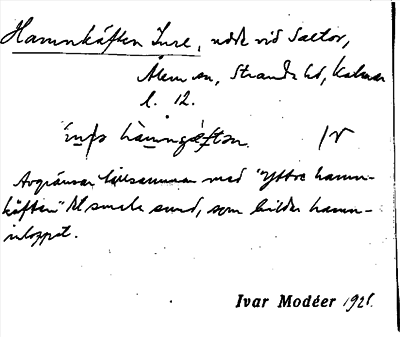 Hamnkäften Inre, udde vid Saltor,
Ålem sn, Stranda hd, Kalmar
l. 12.
Avgränsar tillsamman med "Yttre hamn-
käften" det smala sund, som bildar hamn-
inloppet.
Ivar Modéer 192